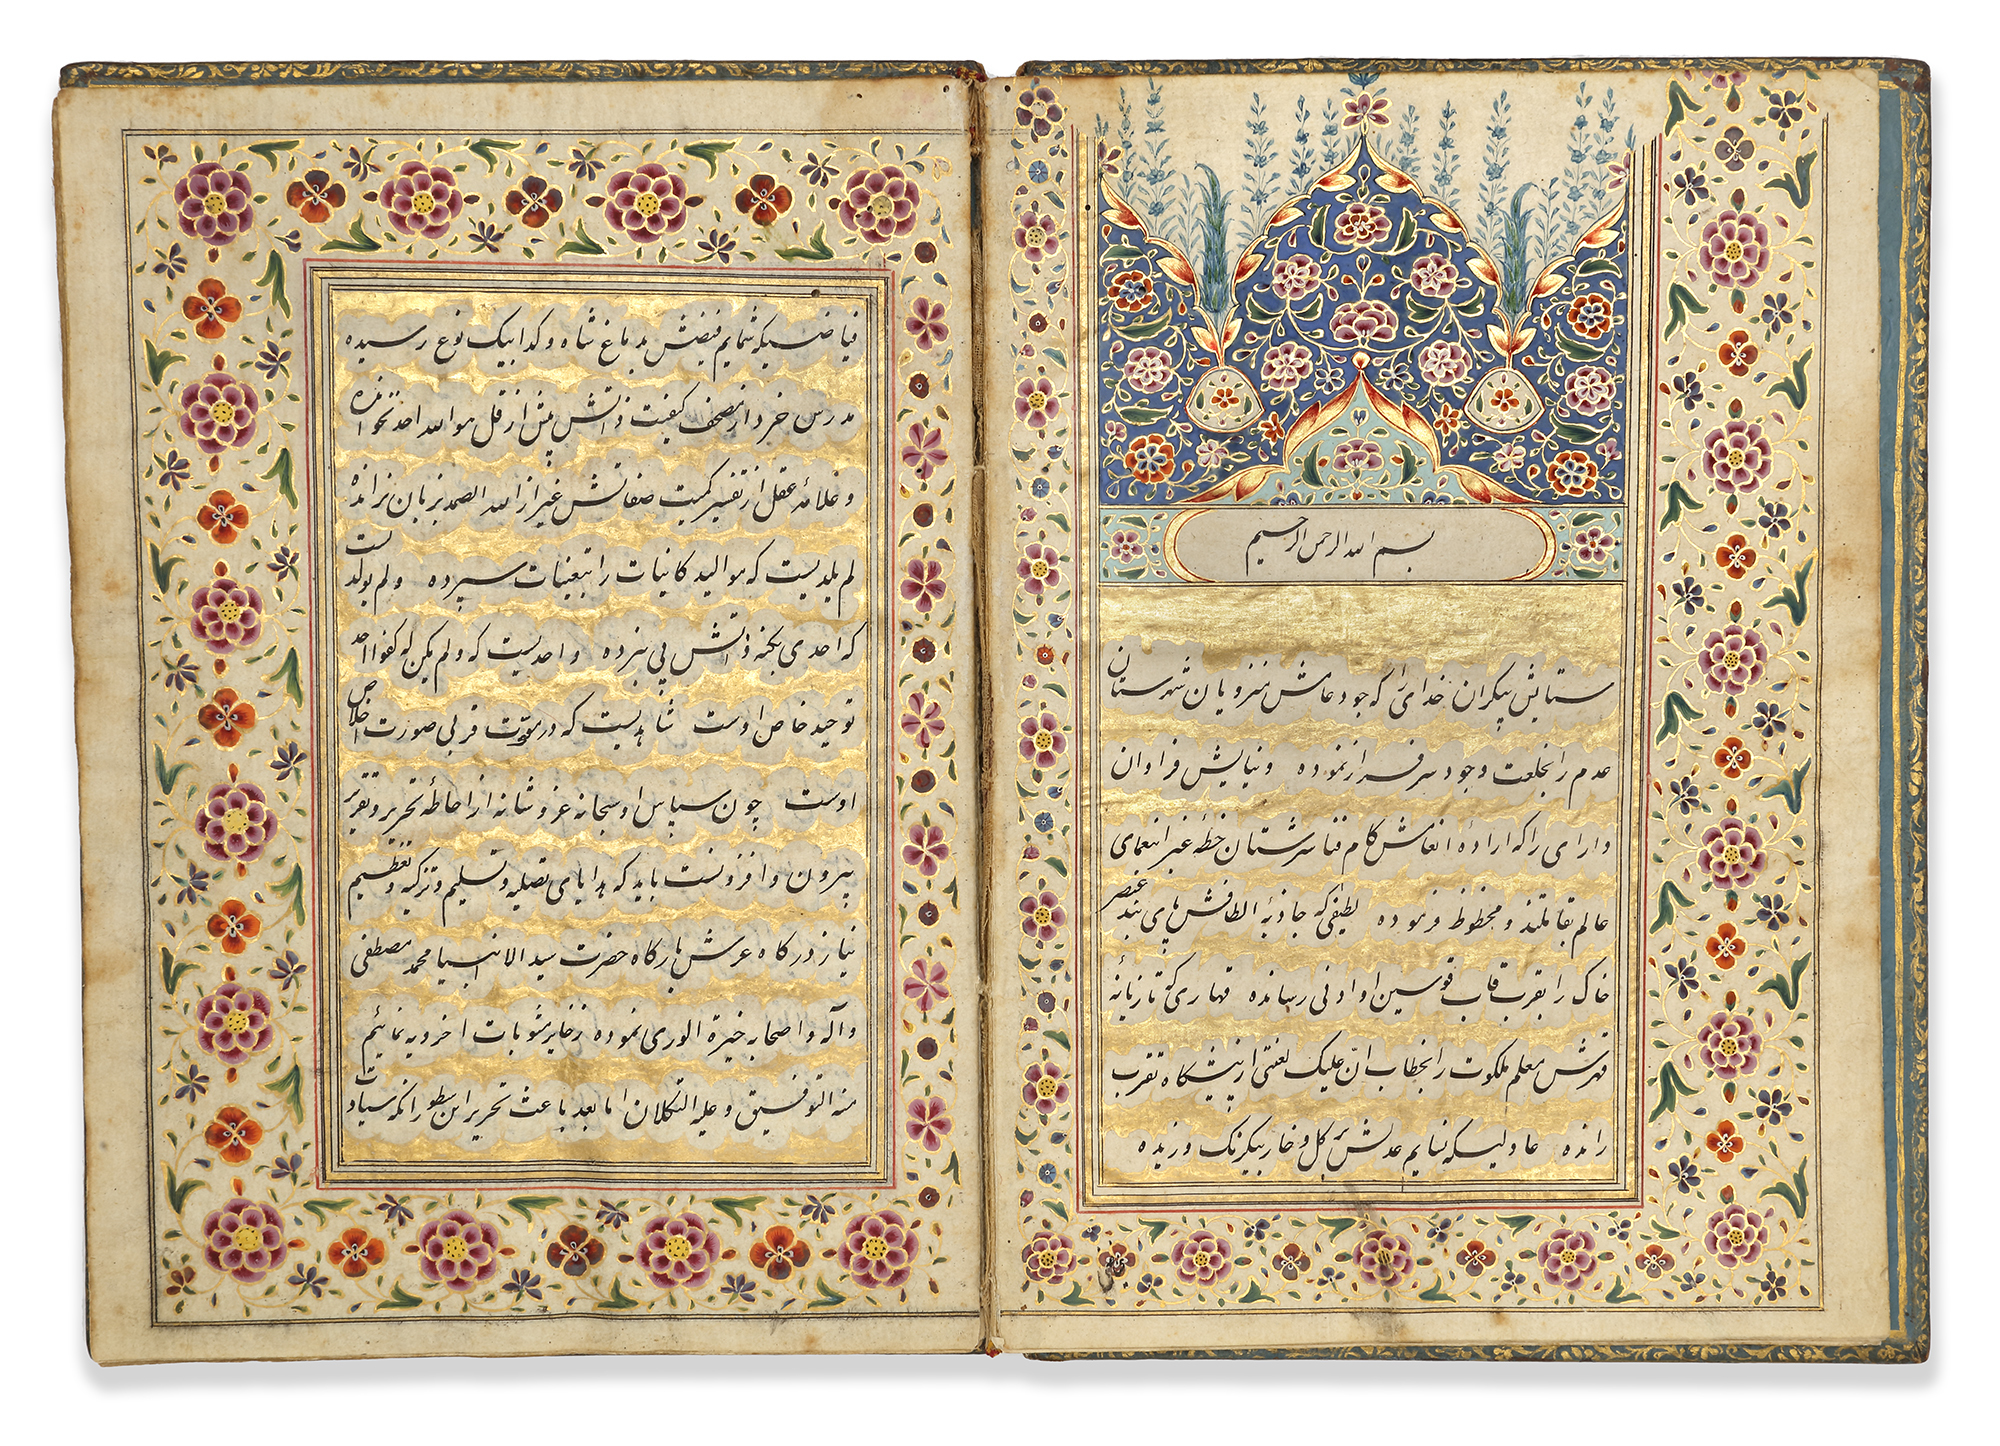 بسم الله الرحمن الرحیم
ستایش بیکران خدای را که جود عامش نیز و یان شهرستان
عدم را بخلعت وجود سرفراز نموده و نیایش فراوان
دارای را که اراده انعامش کام فنا سرشتان خطه غبرا بنعمای
عالم بقا متلذذ و محظوظ فرموده لطیفی که جاذبه الطافش پای بند عنصر
خاک را بقرب قاب قوسین او ادنی رسانده قهاری که تازیانه
قهرش معلم ملکوت را بخطاب ان علیک لعنتی از پیشگاه تقرب
رانده عادلیکه نسایم عدلش بر گل و خار بیکرنگ وزیده
فیاضیکه شمایم فیضش بدماغ شاه و گدا بیک نوع رسیده
مدرس خرد از مصحف کیفیت ذاتش بیش از قل هو الله احد نخوانده
و علامه عقل از تفسیر کمیت صفاتش غیر از الله الصمد بزبان نرانده
لم یلدیست که موالید کاینات را بتعینات سپرده و لم یولدیست
که احدی بکنه ذاتش پی نبرده و احدیست که و لم یکن له کفوا احد
توحید خاص اوست شاهدیست که در قربی صورت اخلاص
اوست چون سپاس او سبحانه عز و شانه از احاطه تحریر و تقریر
بیرون و افزونست باید که هدایای تصلیه و تسلیم و تزکیه و تعظیم
نیاز درگاه عرش بارگاه حضرت سید الانبیا محمد مصطفی
و آله و اصحابه خیرة الوری نموده ذخایر مثوبات اخرویه نمائیم
منه التوفیق و علیه التکلان اما بعد باعث تحریر این سطور آنکه سیادت